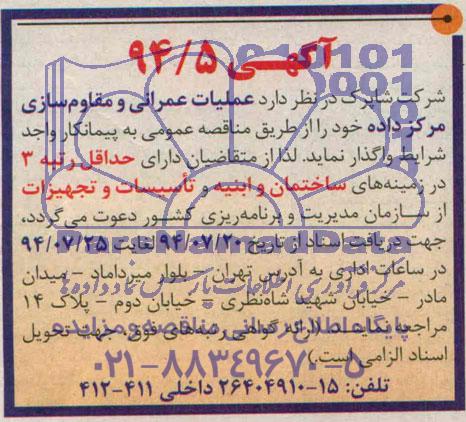 آگهی ۹۴/۵
شرکت شاپرک در نظر دارد عملیات عمرانی و مقاوم‌سازی
مرکز داده خود را از طریق مناقصه عمومی به پیمانکار واجد
شرایط واگذار نماید. لذا از متقاضیان دارای حداقل رتبه ۳
در زمینه‌های ساختمان و ابنیه و تأسیسات و تجهیزات
از سازمان مدیریت و برنامه‌ریزی کشور دعوت می‌گردد،
جهت دریافت اسناد از تاریخ ۹۴/۰۷/۲۰ لغایت ۹۴/۰۷/۲۵
در ساعات اداری به آدرس تهران – بلوار میرداماد – میدان
مادر – خیابان شهید شاه‌نظری – خیابان دوم – پلاک ۱۴
مراجعه نمایند. (ارائه گواهی رتبه‌های فوق، جهت تحویل
اسناد الزامی است.)
تلفن: ۱۵-۲۶۴۰۴۹۱۰ داخلی ۴۱۱-۴۱۲
ParsNamadData
مرکز فرآوری اطلاعات پارس نماد داده‌ها
پایگاه اطلاع رسانی مناقصه و مزایده
۰۲۱-۸۸۳۴۹۶۷۰-۵